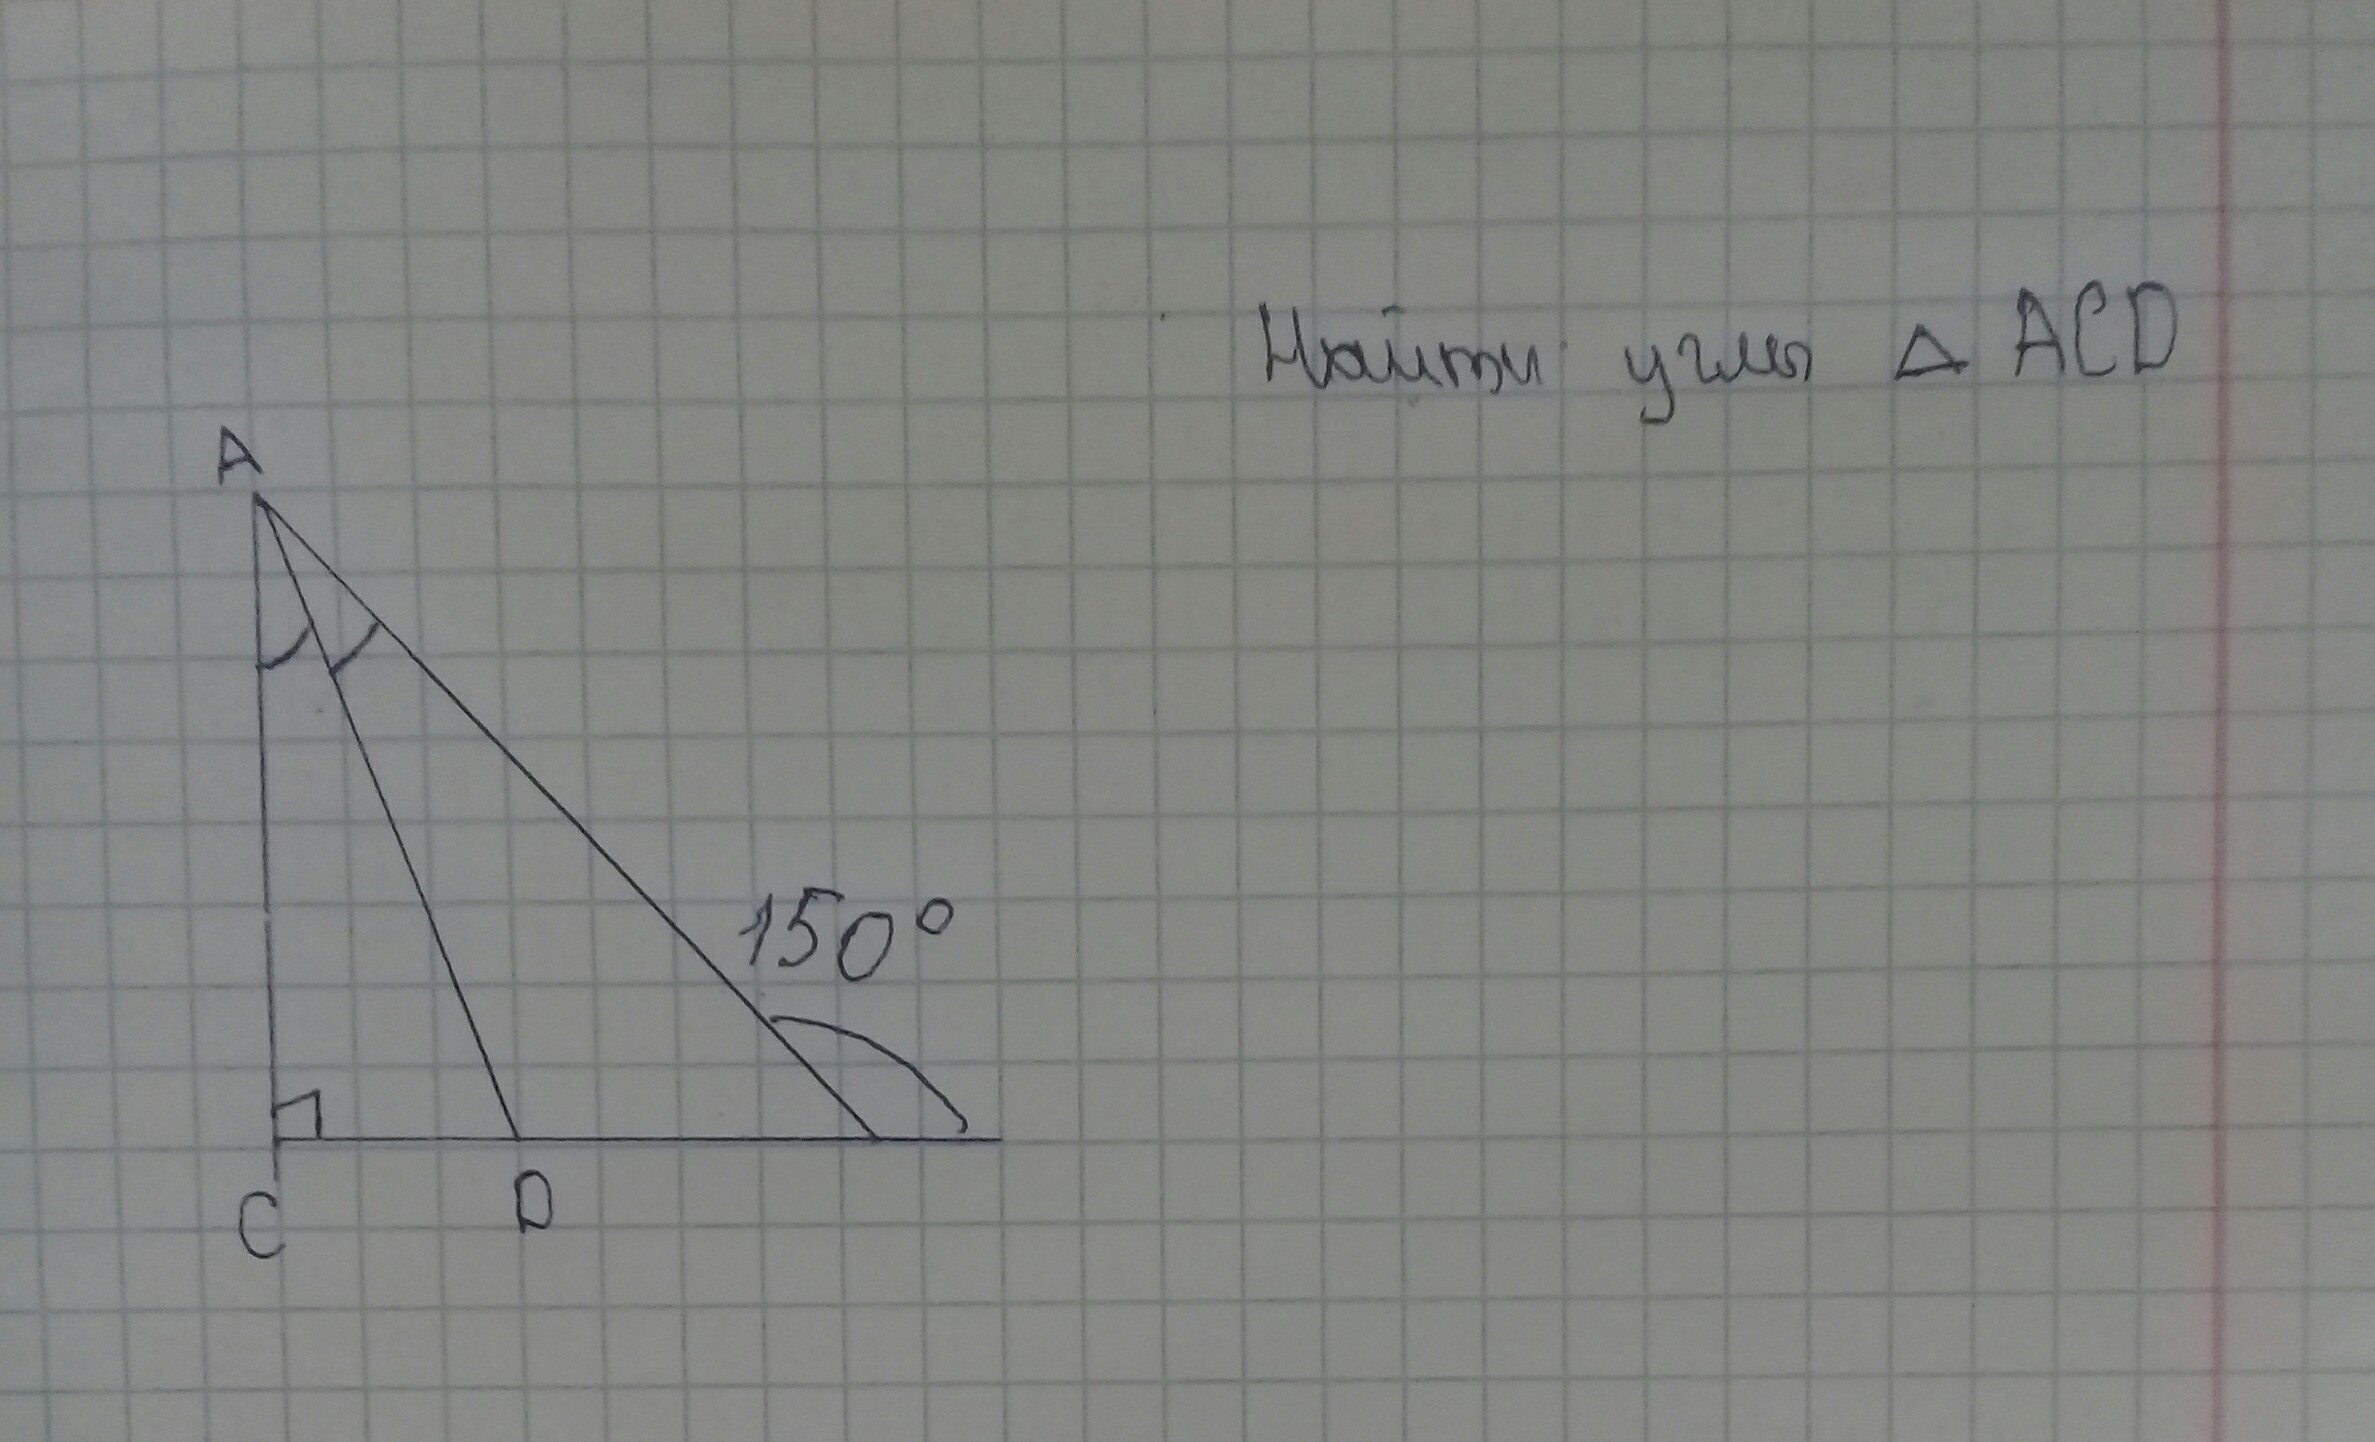 Найти углы △ ACD
A
150°
C
D